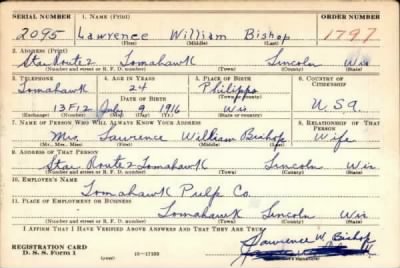 SERIAL NUMBER 1. NAME (Print) ORDER NUMBER
2095 Lawrence William Bishop 1797
(First) (Middle) (Last)
2. ADDRESS (Print)
Star Route 2 Tomahawk Lincoln Wis
(Number and street or R. F. D. number) (Town) (County) (State)
3. TELEPHONE 4. AGE IN YEARS 5. PLACE OF BIRTH 6. COUNTRY OF CITIZENSHIP
Tomahawk 24 Philipps
DATE OF BIRTH (Town or county)
13F12 July 9 1916 Wis U.S.A.
(Exchange) (Number) (Mo.) (Day) (Yr.) (State or country)
7. NAME OF PERSON WHO WILL ALWAYS KNOW YOUR ADDRESS 8. RELATIONSHIP OF THAT PERSON
Mrs. Lawrence William Bishop Wife
(Mr., Mrs., Miss) (First) (Middle) (Last)
9. ADDRESS OF THAT PERSON
Star Route 2 Tomahawk Lincoln Wis
(Number and street or R. F. D. number) (Town) (County) (State)
10. EMPLOYER'S NAME
Tomahawk Pulp Co.
11. PLACE OF EMPLOYMENT OR BUSINESS
Tomahawk Lincoln Wis
(Number and street or R. F. D. number) (Town) (County) (State)
I AFFIRM THAT I HAVE VERIFIED ABOVE ANSWERS AND THAT THEY ARE TRUE.
Lawrence W. Bishop
REGISTRATION CARD
D. S. S. Form 1 (over) 16—17105